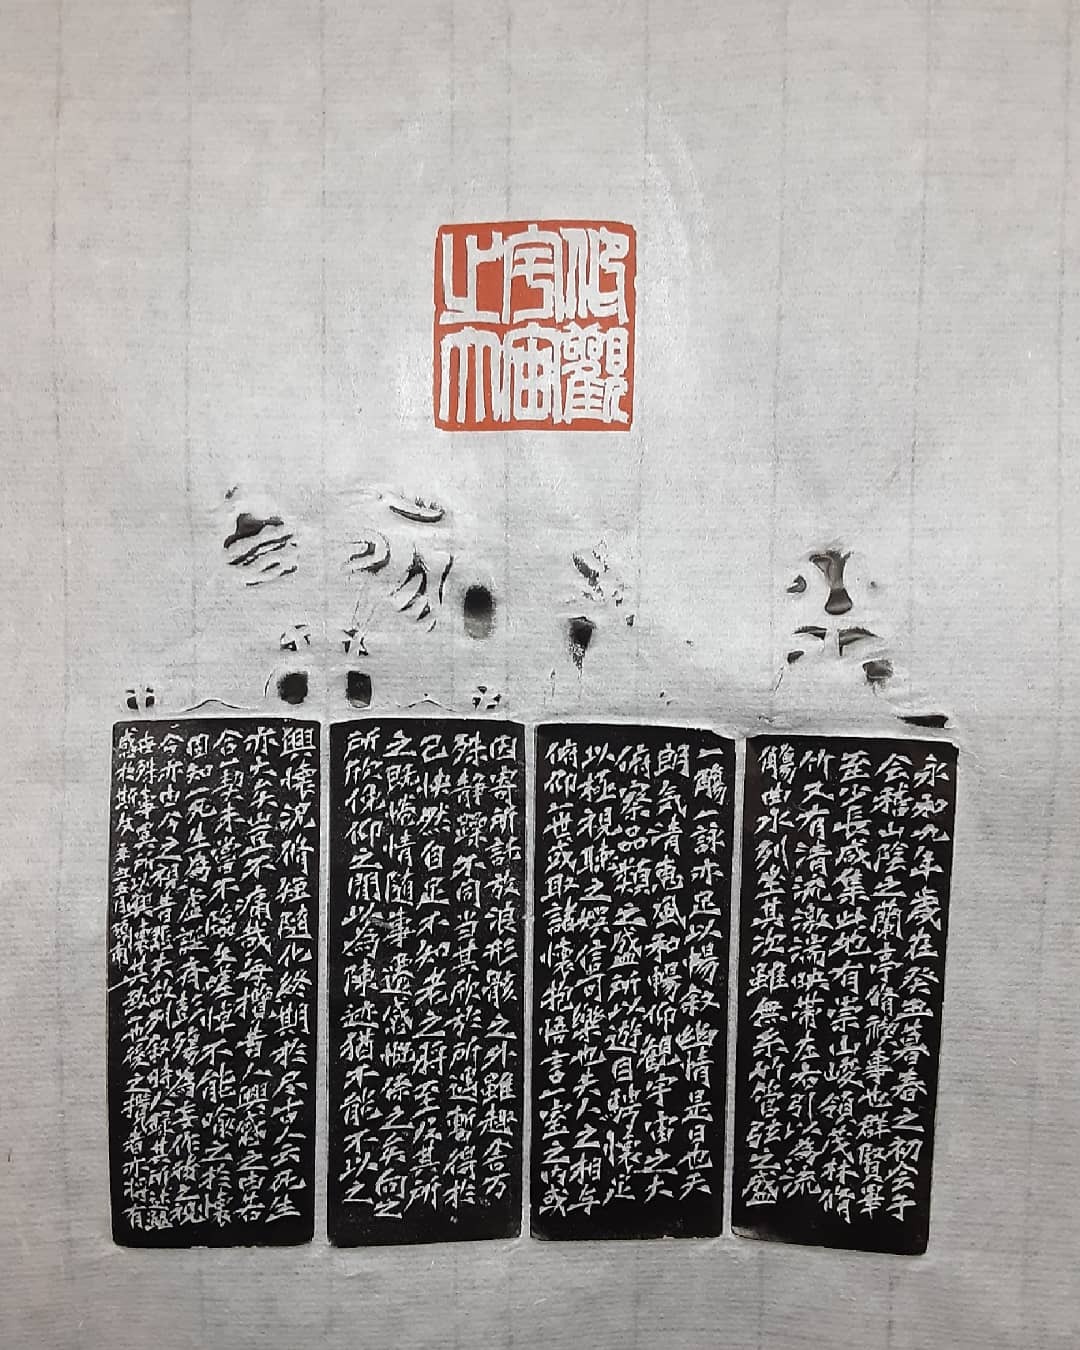 仰觀
宇宙
之大
永和九年歲在癸丑暮春之初会于
会稽山陰之蘭亭脩禊事也群賢畢
至少長咸集此地有崇山峻領茂林脩
竹又有清流激湍映帶左右引以為流
觴曲水列坐其次雖無糸竹管弦之盛
一觴一詠亦足以暢敘幽情是日也天
朗气清恵風和暢仰観宇宙之大
俯察品類之盛所以遊目騁懷足
以極視聴之娯信可樂也夫人之相与
俯仰一世或取諸懐抱悟言一室之内或
因寄所託放浪形骸之外雖趣舎万
殊静躁不同当其欣於所遇暫得於
己怏然自足不知老之将至及其所
之既惓情随事遷感慨係之矣向之
所欣俛仰之閒以為陳迹猶不能不以之
興懐況脩短隨化終期於尽古人云死生
亦大矣豈不痛哉每攬昔人興感之由若
合一契未嘗不臨文嗟悼不能喩之於懐
固知一死生為虚誕斉彭殤為妄作後之視
今亦由今之視昔悲夫故列叙時人録其所述雖
世殊事異所以興懐其致一也後之攬者亦将有
感於斯文